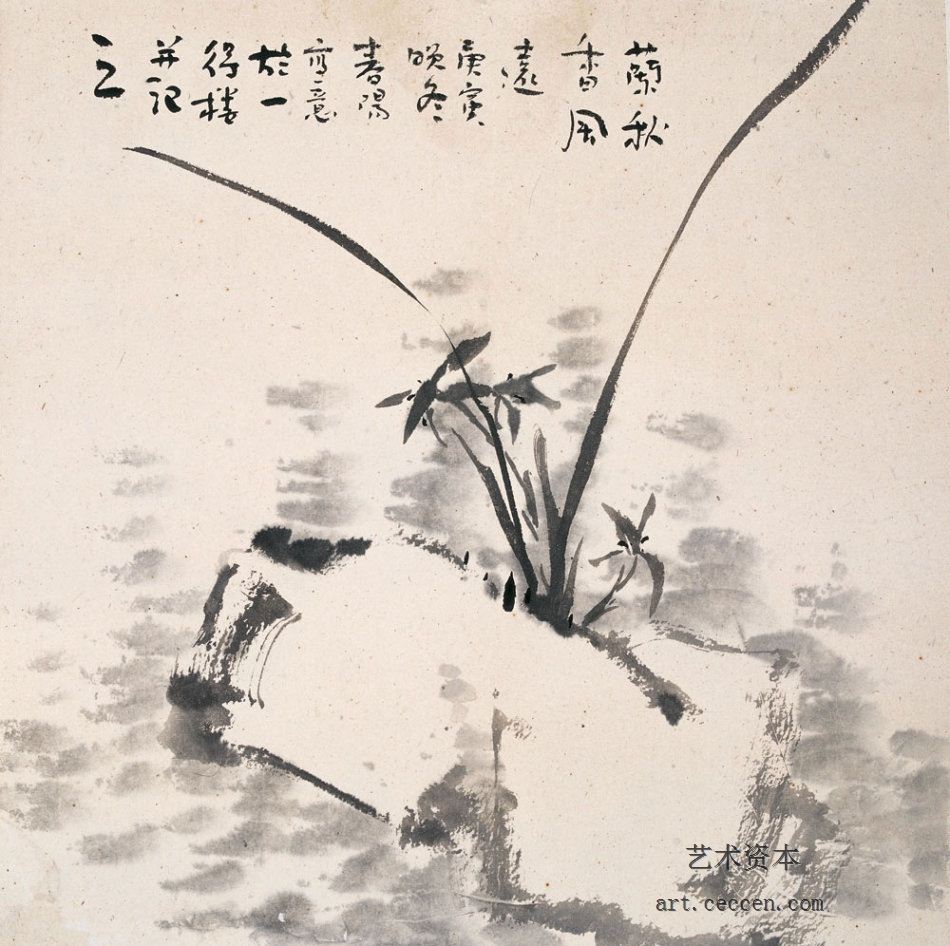 蘭秋
香風
遠
庚寅
晚冬
春陽
寫意
於一
得楼
并記
之
艺术资本
art.ceccen.com